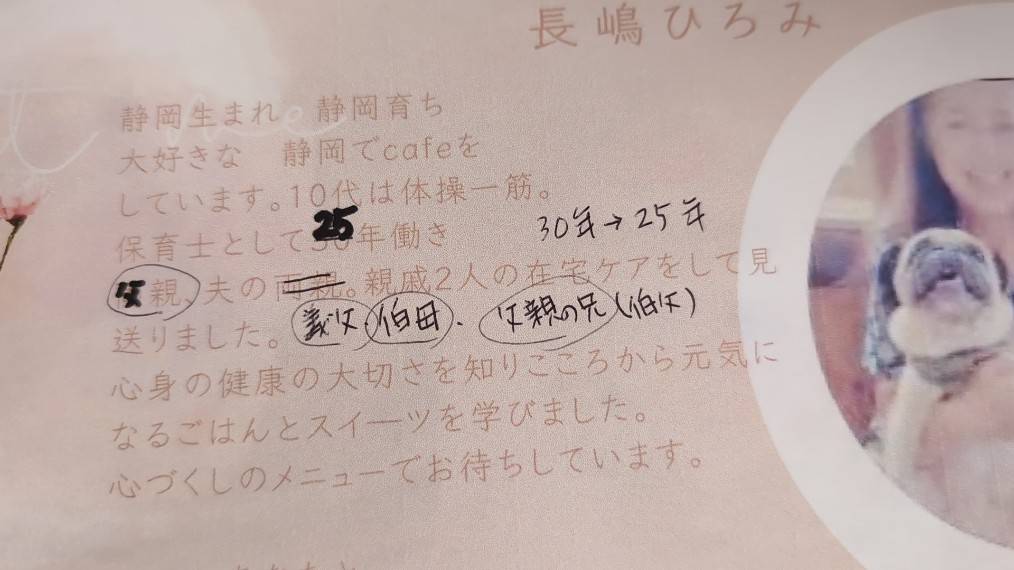 長嶋ひろみ
静岡生まれ 静岡育ち
大好きな 静岡でcafeを
しています。10代は体操一筋。
保育士として25年働き 30年→25年
父親、夫の両親。親戚2人の在宅ケアをして見
送りました。 義父・伯母・父親の兄(伯父)
心身の健康の大切さを知りこころから元気に
なるごはんとスイーツを学びました。
心づくしのメニューでお待ちしています。